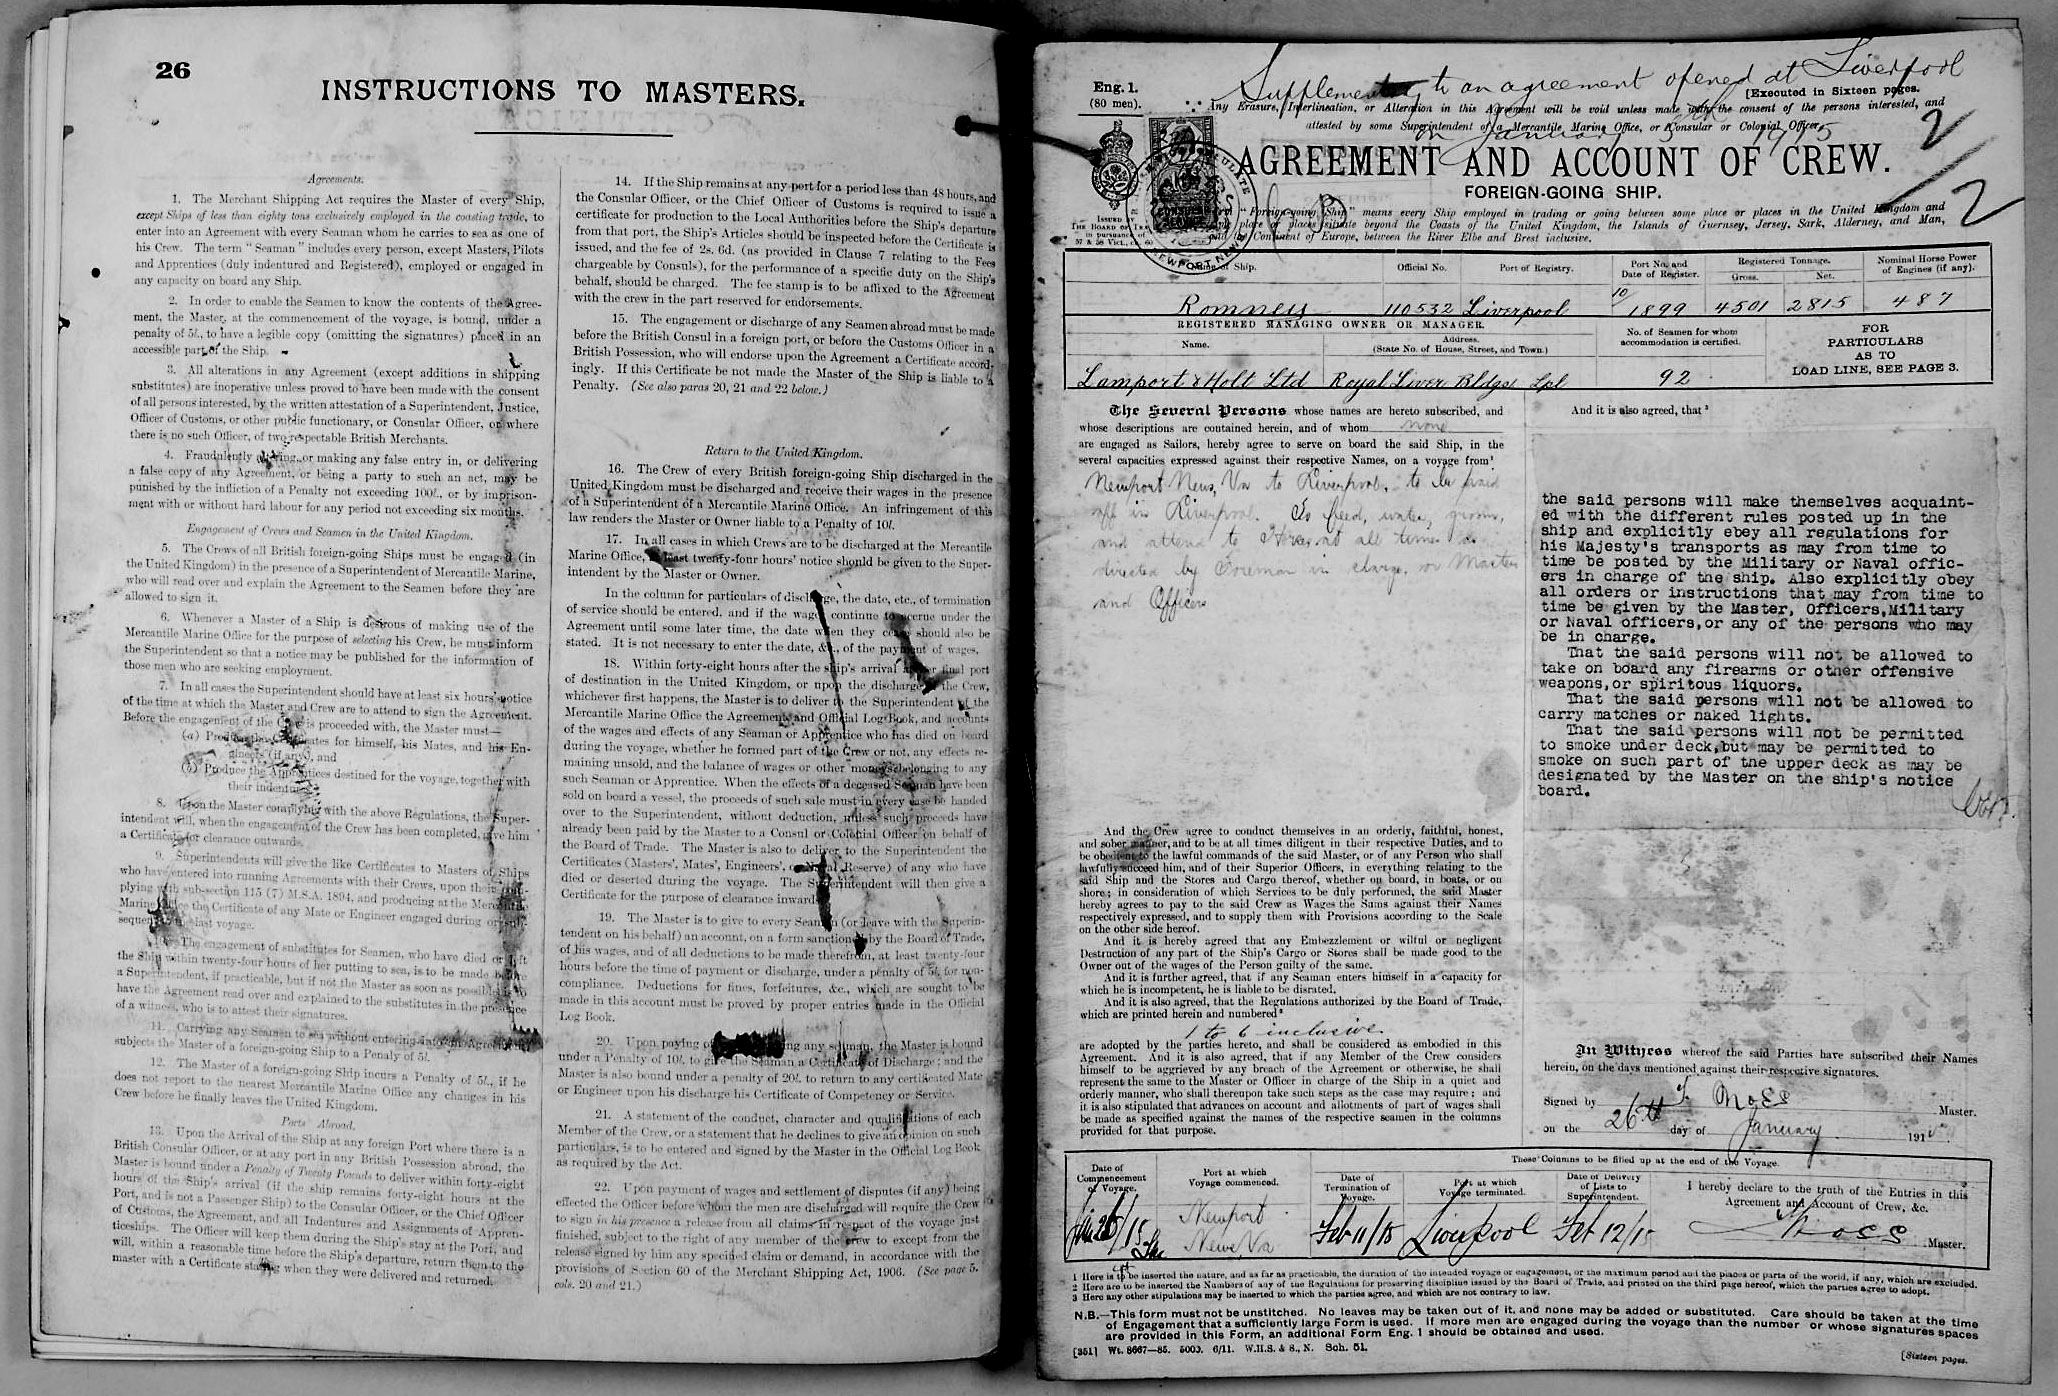 26
INSTRUCTIONS TO MASTERS.
Agreements.
1. The Merchant Shipping Act requires the Master of every Ship,
except Ships of less than eighty tons exclusively employed in the coasting trade, to
enter into an Agreement with every Seaman whom he carries to sea as one of
his Crew. The term "Seaman" includes every person, except Masters, Pilots
and Apprentices (duly indentured and Registered), employed or engaged in
any capacity on board any Ship.
2. In order to enable the Seamen to know the contents of the Agree-
ment, the Master, at the commencement of the voyage, is bound, under a
penalty of 5l., to have a legible copy (omitting the signatures) placed in an
accessible part of the Ship.
3. All alterations in any Agreement (except additions in shipping
substitutes) are inoperative unless proved to have been made with the consent
of all persons interested, by the written attestation of a Superintendent, Justice,
Officer of Customs, or other public functionary, or Consular Officer, or where
there is no such Officer, of two respectable British Merchants.
4. Fraudulently altering, or making any false entry in, or delivering
a false copy of any Agreement, or being a party to such an act, may be
punished by the infliction of a Penalty not exceeding 100l., or by imprison-
ment with or without hard labour for any period not exceeding six months.
Engagement of Crews and Seamen in the United Kingdom.
5. The Crews of all British foreign-going Ships must be engaged (in
the United Kingdom) in the presence of a Superintendent of Mercantile Marine,
who will read over and explain the Agreement to the Seamen before they are
allowed to sign it.
6. Whenever a Master of a Ship is desirous of making use of the
Mercantile Marine Office for the purpose of selecting his Crew, he must inform
the Superintendent so that a notice may be published for the information of
those men who are seeking employment.
7. In all cases the Superintendent should have at least six hours' notice
of the time at which the Master and Crew are to attend to sign the Agreement.
Before the engagement of the Crew is proceeded with, the Master must—
(a) Produce the Certificates for himself, his Mates, and his En-
gineers (if any), and
(b) Produce the Apprentices destined for the voyage, together with
their indentures.
8. Upon the Master complying with the above Regulations, the Super-
intendent will, when the engagement of the Crew has been completed, give him
a Certificate for clearance outwards.
9. Superintendents will give the like Certificates to Masters of Ships
who have entered into running Agreements with their Crews, upon their com-
plying with sub-section 115 (7) M.S.A. 1894, and producing at the Mercantile
Marine Office the Certificate of any Mate or Engineer engaged during or sub-
sequent to last voyage.
10. The engagement of substitutes for Seamen, who have died or left
the Ship within twenty-four hours of her putting to sea, is to be made before
a Superintendent, if practicable, but if not the Master as soon as possible is to
have the Agreement read over and explained to the substitutes in the presence
of a witness, who is to attest their signatures.
11. Carrying any Seaman to sea without entering into an Agreement
subjects the Master of a foreign-going Ship to a Penalty of 5l.
12. The Master of a foreign-going Ship incurs a Penalty of 5l., if he
does not report to the nearest Mercantile Marine Office any changes in his
Crew before he finally leaves the United Kingdom.
Ports Abroad.
13. Upon the Arrival of the Ship at any foreign Port where there is a
British Consular Officer, or at any port in any British Possession abroad, the
Master is bound under a Penalty of Twenty Pounds to deliver within forty-eight
hours of the Ship's arrival (if the ship remains forty-eight hours at the
Port, and is not a Passenger Ship) to the Consular Officer, or the Chief Officer
of Customs, the Agreement, and all Indentures and Assignments of Appren-
ticeships. The Officer will keep them during the Ship's stay at the Port, and
will, within a reasonable time before the Ship's departure, return them to the
master with a Certificate stating when they were delivered and returned.
14. If the Ship remains at any port for a period less than 48 hours, and
the Consular Officer, or the Chief Officer of Customs is required to issue a
certificate for production to the Local Authorities before the Ship's departure
from that port, the Ship's Articles should be inspected before the Certificate is
issued, and the fee of 2s. 6d. (as provided in Clause 7 relating to the Fees
chargeable by Consuls), for the performance of a specific duty on the Ship's
behalf, should be charged. The fee stamp is to be affixed to the Agreement
with the crew in the part reserved for endorsements.
15. The engagement or discharge of any Seamen abroad must be made
before the British Consul in a foreign port, or before the Customs Officer in a
British Possession, who will endorse upon the Agreement a Certificate accord-
ingly. If this Certificate be not made the Master of the Ship is liable to a
Penalty. (See also paras 20, 21 and 22 below.)
Return to the United Kingdom.
16. The Crew of every British foreign-going Ship discharged in the
United Kingdom must be discharged and receive their wages in the presence
of a Superintendent of a Mercantile Marine Office. An infringement of this
law renders the Master or Owner liable to a Penalty of 10l.
17. In all cases in which Crews are to be discharged at the Mercantile
Marine Office, at least twenty-four hours' notice should be given to the Super-
intendent by the Master or Owner.
In the column for particulars of discharge, the date, etc., of termination
of service should be entered, and if the wages continue to accrue under the
Agreement until some later time, the date when they cease should also be
stated. It is not necessary to enter the date, &c., of the payment of wages.
18. Within forty-eight hours after the ship's arrival at her final port
of destination in the United Kingdom, or upon the discharge of the Crew,
whichever first happens, the Master is to deliver to the Superintendent of the
Mercantile Marine Office the Agreements and Official Log Book, and accounts
of the wages and effects of any Seaman or Apprentice who has died on board
during the voyage, whether he formed part of the Crew or not, any effects re-
maining unsold, and the balance of wages or other moneys belonging to any
such Seaman or Apprentice. When the effects of a deceased Seaman have been
sold on board a vessel, the proceeds of such sale must in every case be handed
over to the Superintendent, without deduction, unless such proceeds have
already been paid by the Master to a Consul or Colonial Officer on behalf of
the Board of Trade. The Master is also to deliver to the Superintendent the
Certificates (Masters', Mates', Engineers', or Naval Reserve) of any who have
died or deserted during the voyage. The Superintendent will then give a
Certificate for the purpose of clearance inwards.
19. The Master is to give to every Seaman (or leave with the Superin-
tendent on his behalf) an account, on a form sanctioned by the Board of Trade,
of his wages, and of all deductions to be made therefrom, at least twenty-four
hours before the time of payment or discharge, under a penalty of 5l. for non-
compliance. Deductions for fines, forfeitures, &c., which are sought to be
made in this account must be proved by proper entries made in the Official
Log Book.
20. Upon paying off or discharging any seaman, the Master is bound
under a Penalty of 10l. to give the Seaman a Certificate of Discharge; and the
Master is also bound under a penalty of 20l. to return to any certificated Mate
or Engineer upon his discharge his Certificate of Competency or Service.
21. A statement of the conduct, character and qualifications of each
Member of the Crew, or a statement that he declines to give an opinion on such
particulars, is to be entered and signed by the Master in the Official Log Book
as required by the Act.
22. Upon payment of wages and settlement of disputes (if any) being
effected the Officer before whom the men are discharged will require the Crew
to sign in his presence a release from all claims in respect of the voyage just
finished, subject to the right of any member of the crew to except from the
release signed by him any specified claim or demand, in accordance with the
provisions of Section 60 of the Merchant Shipping Act, 1906. (See page 5,
cols. 20 and 21.)
Supplementary to an agreement opened at Liverpool
on January 1915
2/2
Eng. 1.
(80 men).
[Executed in Sixteen pages.
Any Erasure, Interlineation, or Alteration in this Agreement will be void unless made with the consent of the persons interested, and
attested by some Superintendent of a Mercantile Marine Office, or Consular or Colonial Officer.
AGREEMENT AND ACCOUNT OF CREW.
FOREIGN-GOING SHIP.
CONSULAR SERVICE
NEWPORT NEWS
ISSUED BY
THE BOARD OF TRADE
in pursuance of
57 & 58 Vict., ch. 60
"Foreign-going Ship" means every Ship employed in trading or going between some place or places in the United Kingdom and
place or places situate beyond the Coasts of the United Kingdom, the Islands of Guernsey, Jersey, Sark, Alderney, and Man,
and the Continent of Europe, between the River Elbe and Brest inclusive.
Name of Ship. Official No. Port of Registry. Port No. and Date of Register. Registered Tonnage. Gross. Net. Nominal Horse Power of Engines (if any).
Romney 110532 Liverpool 10/1899 4501 2815 487
REGISTERED MANAGING OWNER OR MANAGER.
Name. Address. (State No. of House, Street, and Town.)
No. of Seamen for whom accommodation is certified.
FOR
PARTICULARS
AS TO
LOAD LINE, SEE PAGE 3.
Lamport & Holt Ltd Royal Liver Bldgs Lpl 92
The Several Persons whose names are hereto subscribed, and
whose descriptions are contained herein, and of whom none
are engaged as Sailors, hereby agree to serve on board the said Ship, in the
several capacities expressed against their respective Names, on a voyage from¹
Newport News, Va to Liverpool, to be paid
off in Liverpool. To feed, water, groom,
and attend to Horses at all times as
directed by Foreman in charge, or Master
and Officers
And the Crew agree to conduct themselves in an orderly, faithful, honest,
and sober manner, and to be at all times diligent in their respective Duties, and to
be obedient to the lawful commands of the said Master, or of any Person who shall
lawfully succeed him, and of their Superior Officers, in everything relating to the
said Ship and the Stores and Cargo thereof, whether on board, in boats, or on
shore; in consideration of which Services to be duly performed, the said Master
hereby agrees to pay to the said Crew as Wages the Sums against their Names
respectively expressed, and to supply them with Provisions according to the Scale
on the other side hereof.
And it is hereby agreed that any Embezzlement or wilful or negligent
Destruction of any part of the Ship's Cargo or Stores shall be made good to the
Owner out of the wages of the Person guilty of the same.
And it is further agreed, that if any Seaman enters himself in a capacity for
which he is incompetent, he is liable to be disrated.
And it is also agreed, that the Regulations authorized by the Board of Trade,
which are printed herein and numbered²
1 to 6 inclusive.
are adopted by the parties hereto, and shall be considered as embodied in this
Agreement. And it is also agreed, that if any Member of the Crew considers
himself to be aggrieved by any breach of the Agreement or otherwise, he shall
represent the same to the Master or Officer in charge of the Ship in a quiet and
orderly manner, who shall thereupon take such steps as the case may require; and
it is also stipulated that advances on account and allotments of part of wages shall
be made as specified against the names of the respective seamen in the columns
provided for that purpose.
And it is also agreed, that³
the said persons will make themselves acquaint-
ed with the different rules posted up in the
ship and explicitly ebey all regulations for
his Majesty's transports as may from time to
time be posted by the Military or Naval offic-
ers in charge of the ship. Also explicitly obey
all orders or instructions that may from time to
time be given by the Master, Officers,Military
or Naval officers,or any of the persons who may
be in charge.
That the said persons will not be allowed to
take on board any firearms or other offensive
weapons,or spiritous liquors.
That the said persons will not be allowed to
carry matches or naked lights.
That the said persons will not be permitted
to smoke under deck,but may be permitted to
smoke on such part of the upper deck as may be
designated by the Master on the ship's notice
board.
In Witness whereof the said Parties have subscribed their Names
herein, on the days mentioned against their respective signatures.
Signed by T. Moss Master.
on the 26th day of January 1915
These Columns to be filled up at the end of the Voyage.
Date of Commencement of Voyage. Port at which Voyage commenced. Date of Termination of Voyage. Port at which Voyage terminated. Date of Delivery of Lists to Superintendent.
I hereby declare to the truth of the Entries in this
Agreement and Account of Crew, &c.
Jan 26/15 Newport News Va Feb 11/15 Liverpool Feb 12/15 T Moss Master.
1 Here is to be inserted the nature, and as far as practicable, the duration of the intended voyage or engagement, or the maximum period and the places or parts of the world, if any, which are excluded.
2 Here are to be inserted the Numbers of any of the Regulations for preserving discipline issued by the Board of Trade, and printed on the third page hereof, which the parties agree to adopt.
3 Here any other stipulations may be inserted to which the parties agree, and which are not contrary to law.
N.B.—This form must not be unstitched. No leaves may be taken out of it, and none may be added or substituted. Care should be taken at the time
of Engagement that a sufficiently large Form is used. If more men are engaged during the voyage than the number or whose signatures spaces
are provided in this Form, an additional Form Eng. 1 should be obtained and used.
[351] Wt. 8667—85. 5000. 6/11. W.H.S. & S., N. Sch. 51.
[Sixteen pages.